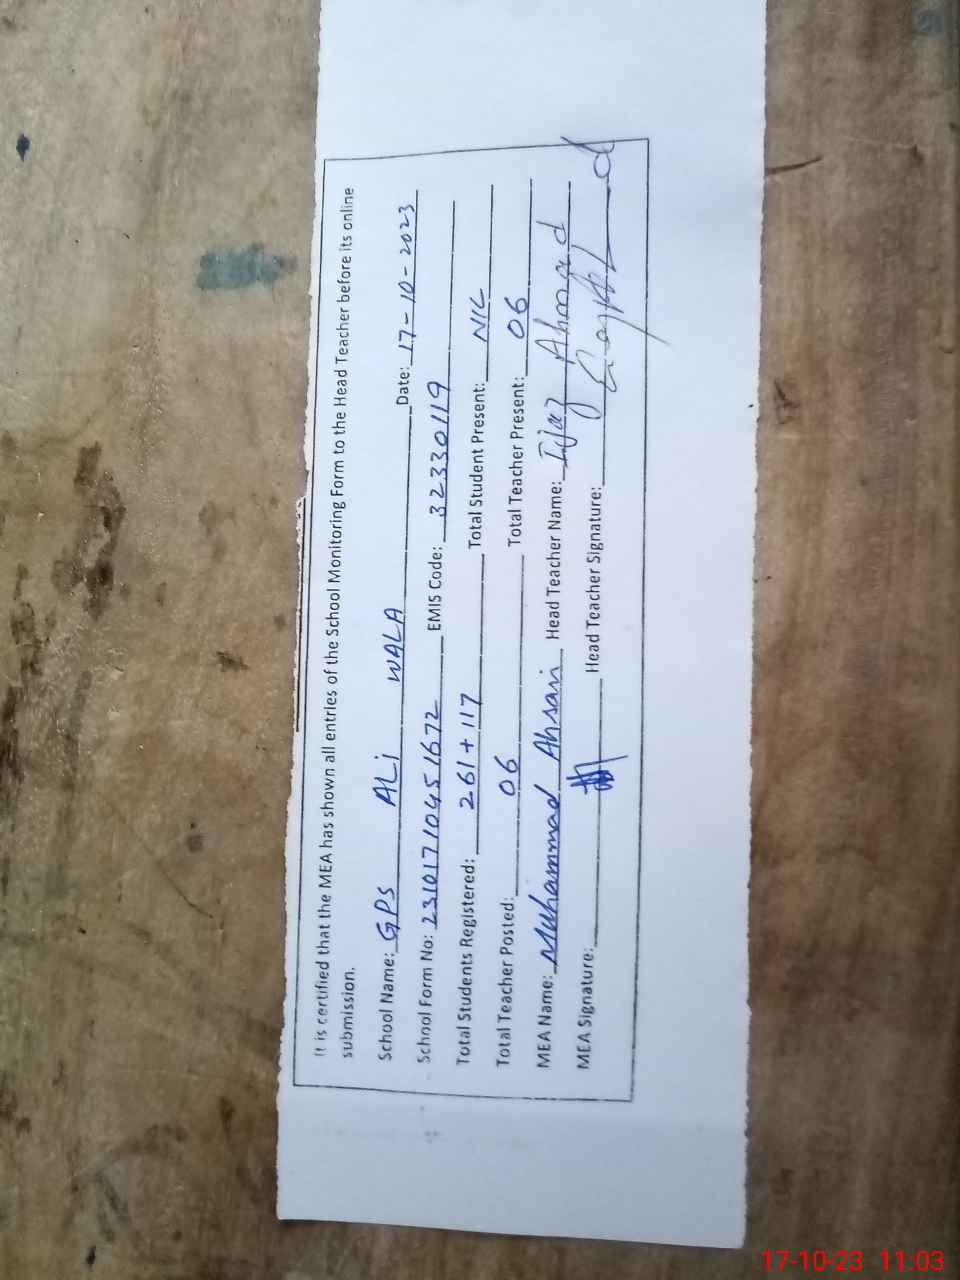 It is certified that the MEA has shown all entries of the School Monitoring Form to the Head Teacher before its online
submission.
School Name: GPS ALi WALA Date: 17-10-2023
School Form No: 231017104516 72 EMIS Code: 32330119
Total Students Registered: 261+117 Total Student Present: NIL
Total Teacher Posted: 06 Total Teacher Present: 06
MEA Name: Muhammad Ahsan Head Teacher Name: Ijaz Ahmad
MEA Signature: Head Teacher Signature:
17-10-23 11:03